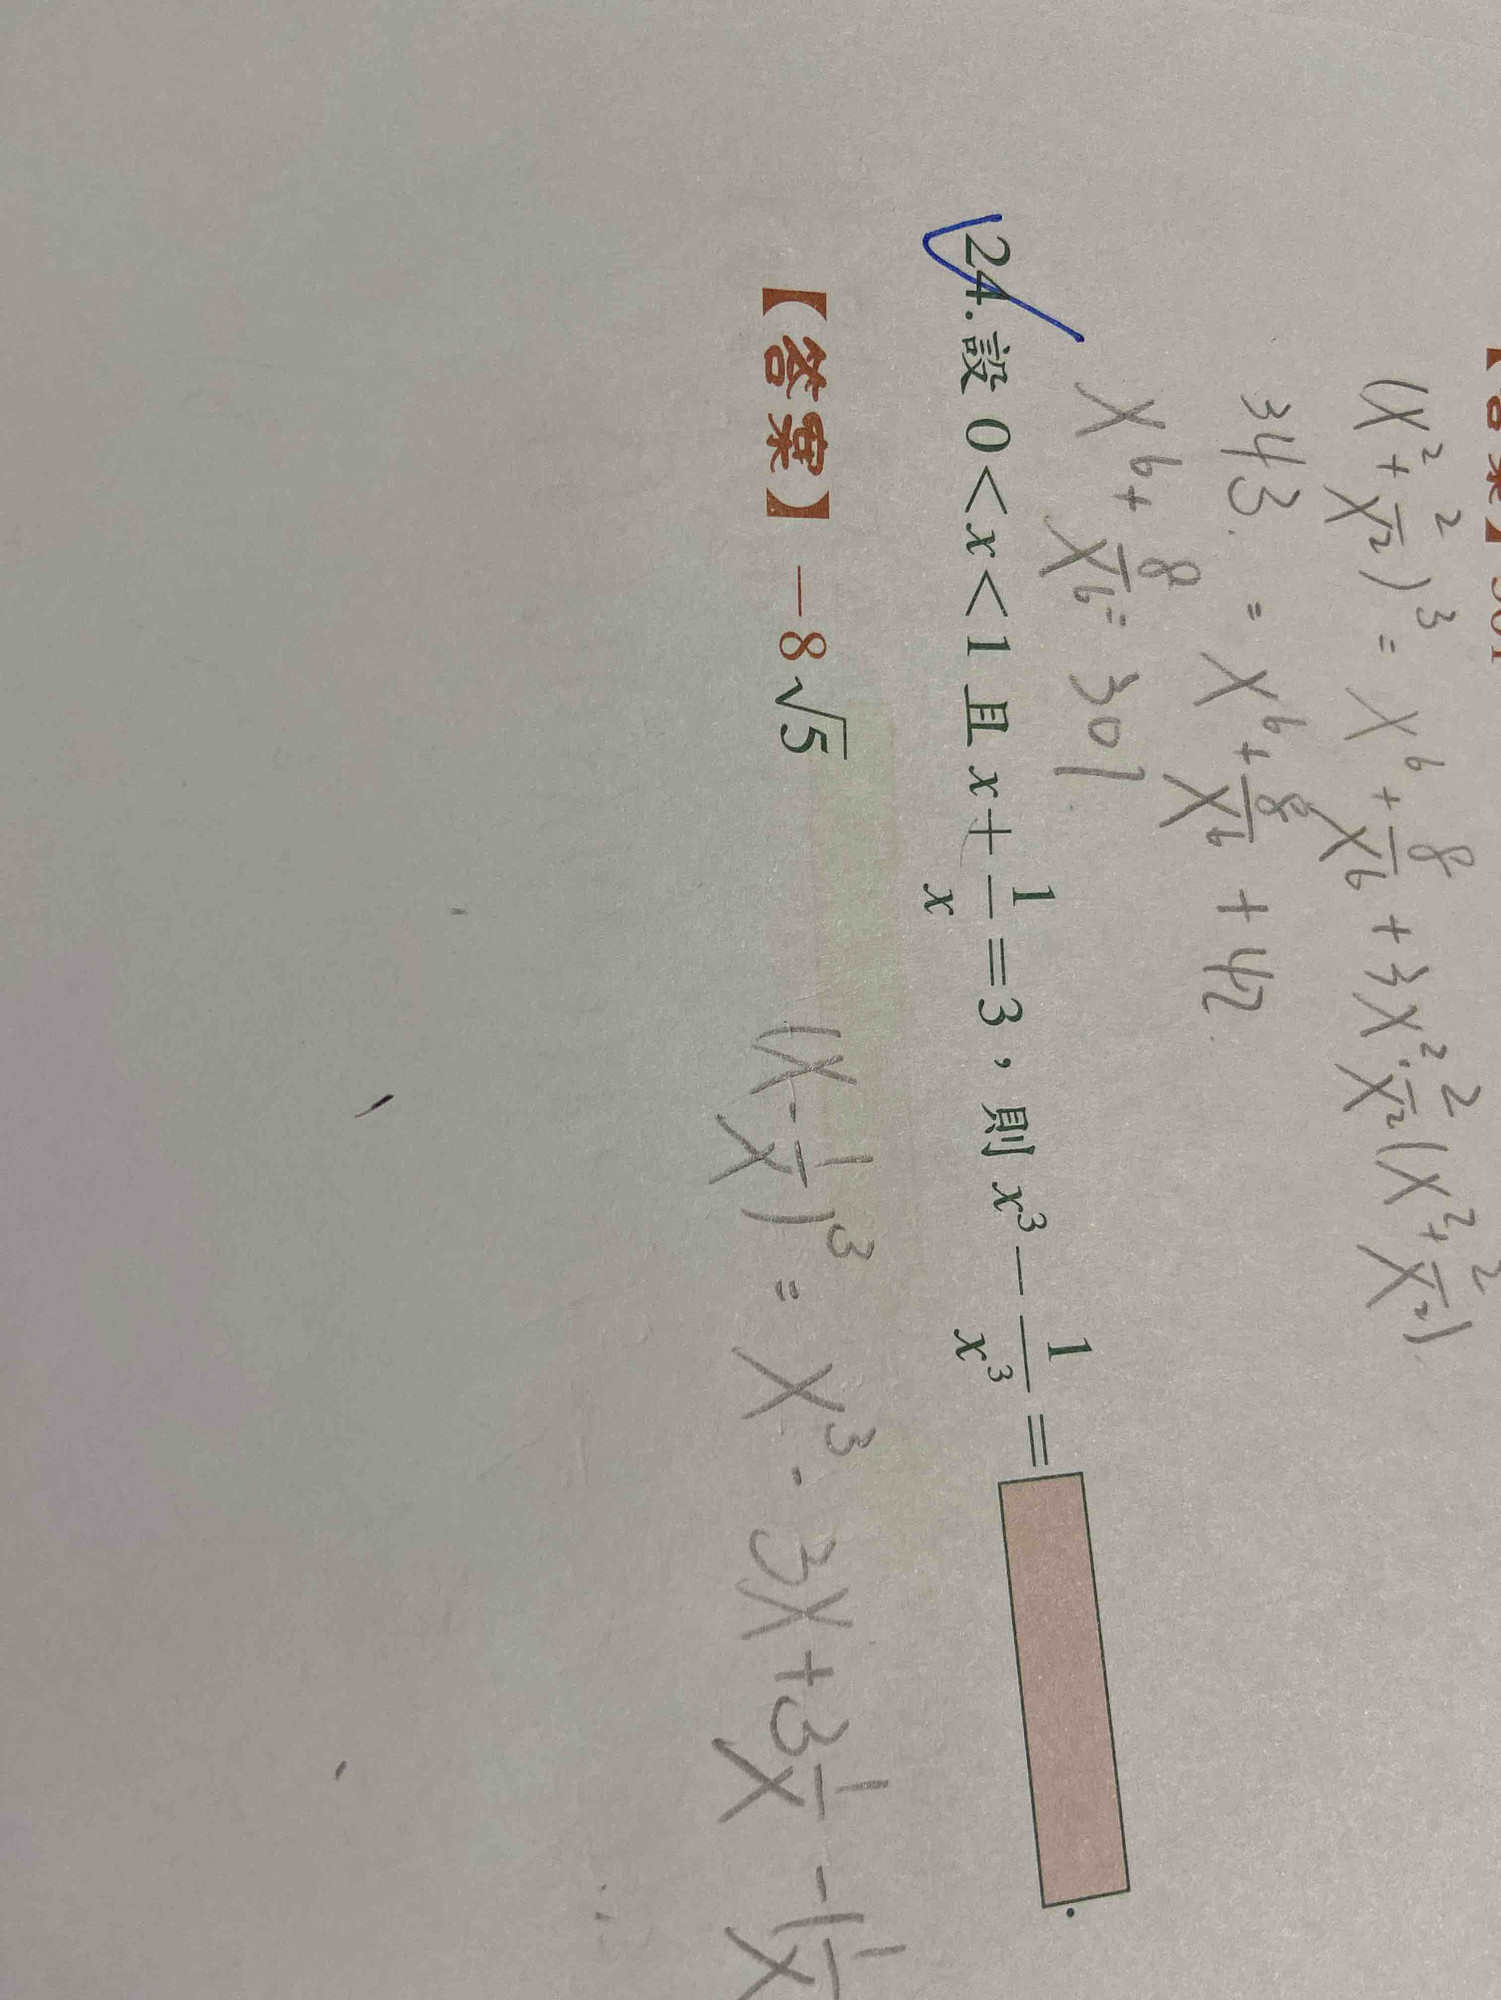 (x²+2/x²)³ = x⁶+8/x⁶+3x²·2/x²(x²+2/x²)
343 = x⁶+8/x⁶+42
x⁶+8/x⁶=301
24.設 0<x<1 且 x+1/x=3,則 x³-1/x³=
【答案】-8√5
(x-1/x)³ = x³-3x+3 1/x -